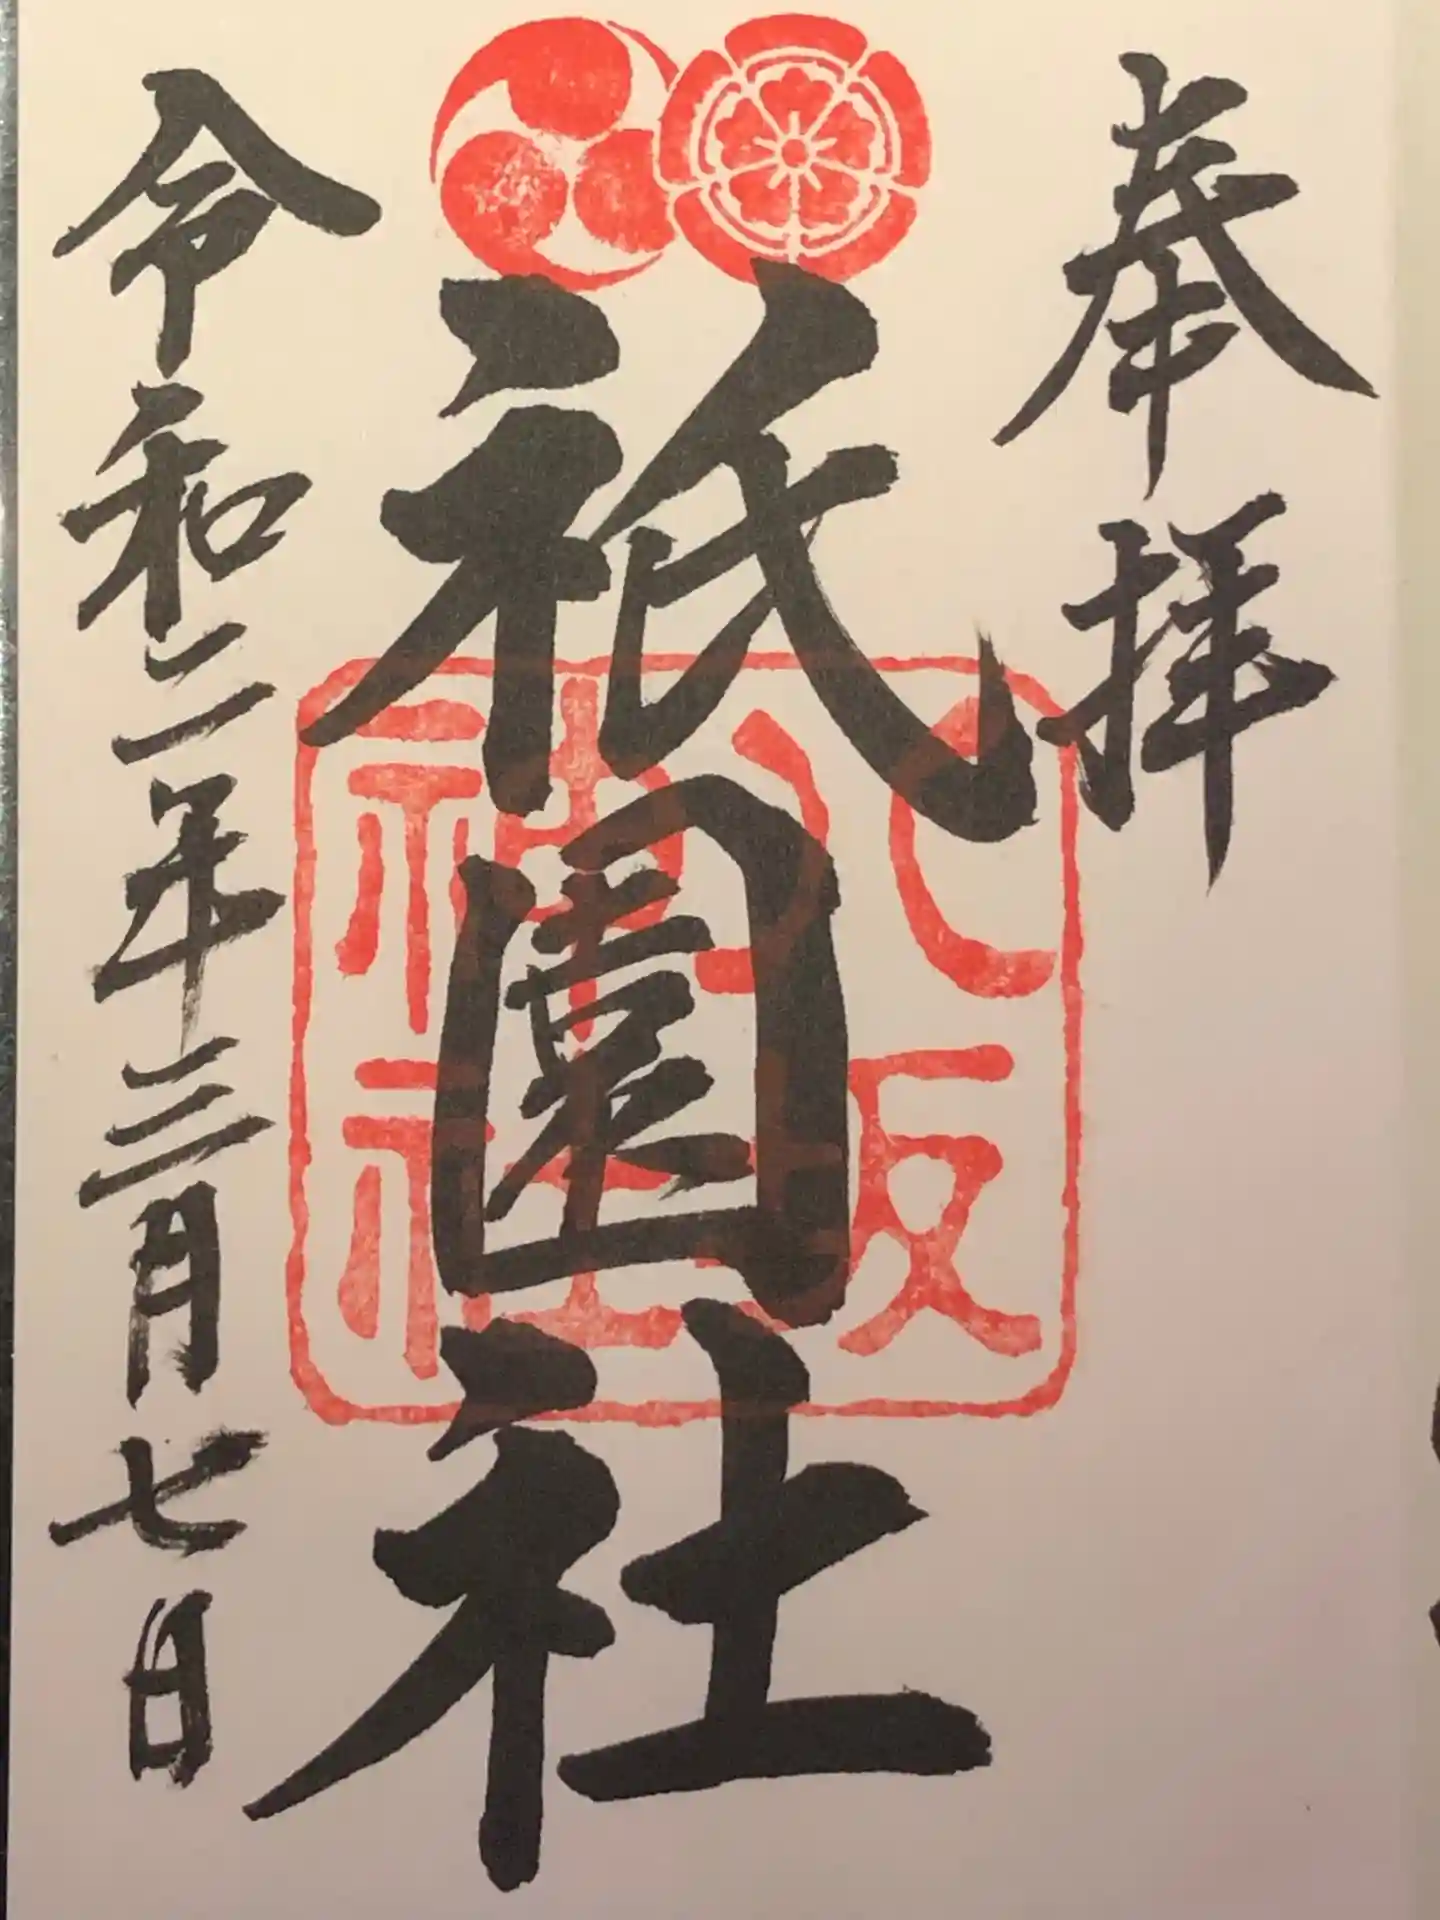 奉拝
祇園社
八坂
神社
令和二年三月七日